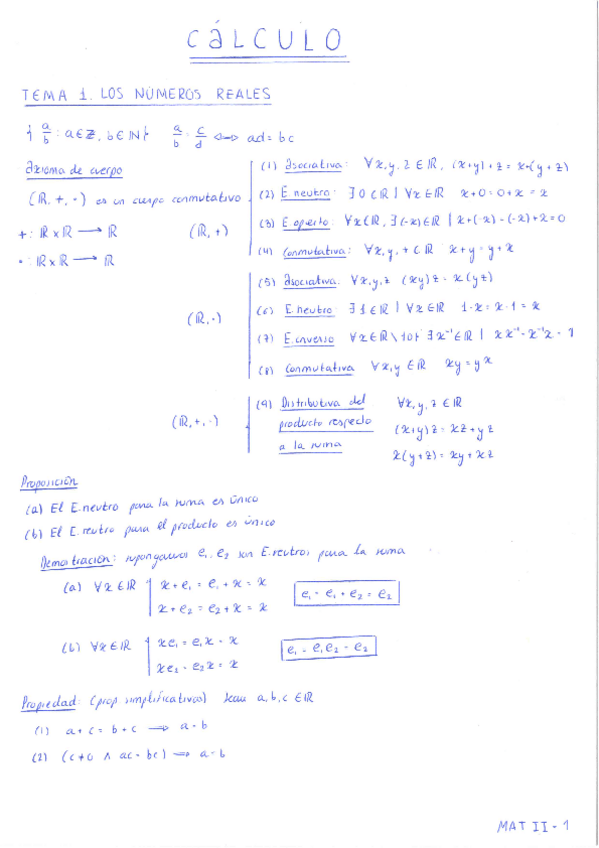 CÁLCULO
TEMA 1. LOS NÚMEROS REALES
{ a/b : a∈ℤ, b∈ℕ } a/b = c/d ⟺ ad = bc
Axioma de cuerpo
(ℝ, +, ·) es un cuerpo conmutativo
+ : ℝ x ℝ ⟶ ℝ
· : ℝ x ℝ ⟶ ℝ
(ℝ, +)
(1) Asociativa: ∀x, y, z ∈ ℝ, (x+y)+z = x+(y+z)
(2) E. neutro: ∃ 0 ∈ ℝ | ∀x ∈ ℝ x+0 = 0+x = x
(3) E. opuesto: ∀x ∈ ℝ, ∃ (-x) ∈ ℝ | x+(-x) = (-x)+x = 0
(4) Conmutativa: ∀x, y, + ∈ ℝ x+y = y+x
(ℝ, ·)
(5) Asociativa: ∀x, y, z (xy)z = x(yz)
(6) E. neutro: ∃ 1 ∈ ℝ | ∀x ∈ ℝ 1·x = x·1 = x
(7) E. inverso ∀x ∈ ℝ\{0} ∃ x⁻¹ ∈ ℝ | xx⁻¹ = x⁻¹x = 1
(8) Conmutativa ∀x, y ∈ ℝ xy = yx
(ℝ, +, ·)
(9) Distributiva del ∀x, y, z ∈ ℝ
producto respecto (x+y)z = xz + yz
a la suma x(y+z) = xy + xz
Proposición
(a) El E. neutro para la suma es único
(b) El E. neutro para el producto es único
Demostración: supongamos e₁, e₂ son E. neutros para la suma
(a) ∀x ∈ ℝ x + e₁ = e₁ + x = x
x + e₂ = e₂ + x = x
e₁ = e₁ + e₂ = e₂
(b) ∀x ∈ ℝ xe₁ = e₁x = x
xe₂ = e₂x = x
e₁ = e₁e₂ = e₂
Propiedad: (prop simplificativas) Sean a, b, c ∈ ℝ
(1) a + c = b + c ⟹ a = b
(2) (c ≠ 0 ∧ ac = bc) ⟹ a = b
MAT II - 1